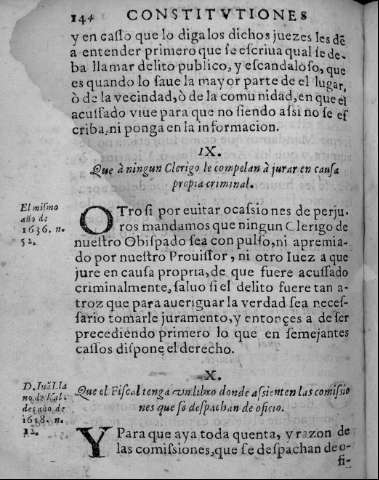 144 CONSTITVTIONES
y en casso que lo diga los dichos juezes les dẽ
a entender primero que se escriua qual se de-
ba llamar delito publico, y escandaloso, que
es quando lo saue la mayor parte de el lugar,
ò de la vecindad, ò de la comunidad, en que el
acussado viue para que no siendo assi no se es
criba, ni ponga en la informacion.
IX.
Que à ningun Clerigo le compelan à jurar en causa
propia criminal.
El mismo
año de
1636. n.
52.
OTrosi por euitar ocassiones de perju-
ros mandamos que ningun Clerigo de
nuestro Obispado sea conpulso, ni apremia-
do por nuestro Prouissor, ni otro Iuez a que
jure en causa propria, de que fuere acussado
criminalmente, saluo si el delito fuere tan a-
troz que para aueriguar la verdad sea neces-
sario tomarle juramento, y entonçes a de ser
precediendo primero lo que en semejantes
cassos dispone el derecho.
X.
D. Iuã Lla
no de Val-
des año de
1638. n.
12.
Que el Fiscal tenga vn libro donde assienten las comissio
nes que se despachan de oficio.
Y Para que aya toda quenta, y razon de
las comissiones, que se despachan de o-
fi-